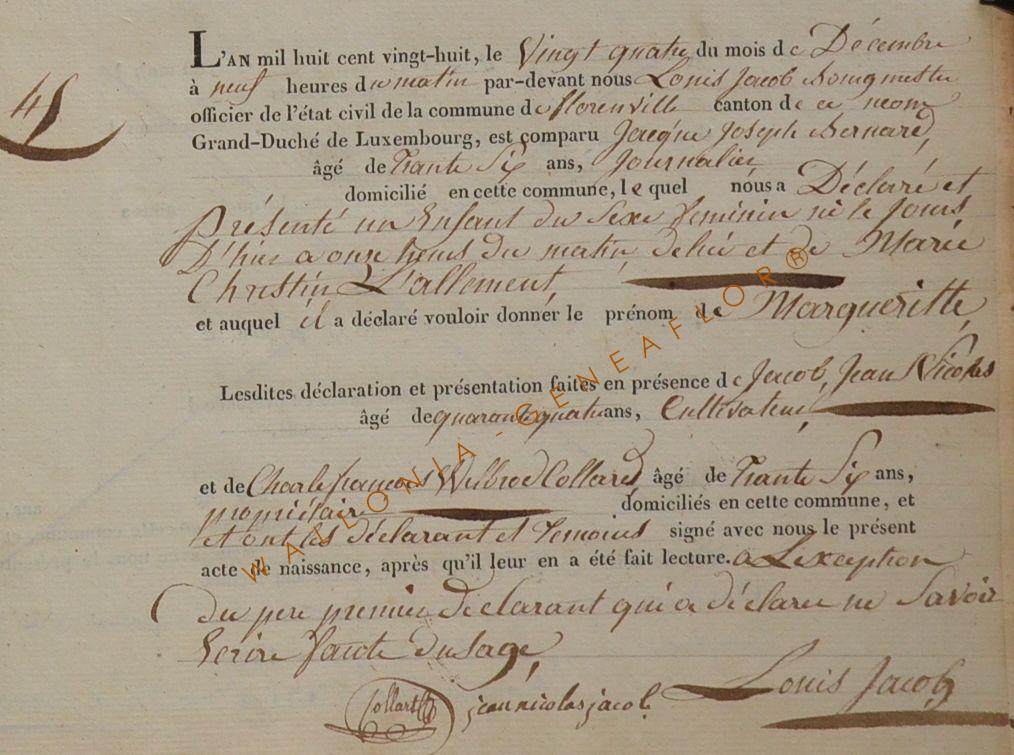 45
L'AN mil huit cent vingt-huit, le Vingt quatre du mois de Décembre
à neuf heures du matin par-devant nous Louis Jacob Bourgmestre
officier de l'état civil de la commune de florenville canton de ce nom
Grand-Duché de Luxembourg, est comparu Jacque Joseph Bernard,
âgé de Trante Six ans, Journalier
domicilié en cette commune, le quel nous a Déclaré et
Présenté un Enfant du Sexe Feminin né le Jours
D'hier a onze heurs du matin, de lui et de Marie
Christin L'allement,
et auquel il a déclaré vouloir donner le prénom de Margueritte,
Lesdites déclaration et présentation faites en présence de Jacob, Jean Nicolas
âgé de quarante quatre ans, Cultivateur,
et de Charle francois Wilbrod Collard âgé de Trante Six ans,
propriétair domiciliés en cette commune, et
et ont les déclarant et Temoins signé avec nous le présent
acte de naissance, après qu'il leur en a été fait lecture. a L'exception
du pere premier declarant qui a déclaré ne Savoir
Ecrire faute dusage,
Collard jean nicolas jacob Louis Jacob
WALLONIA-GENEAFLOR®